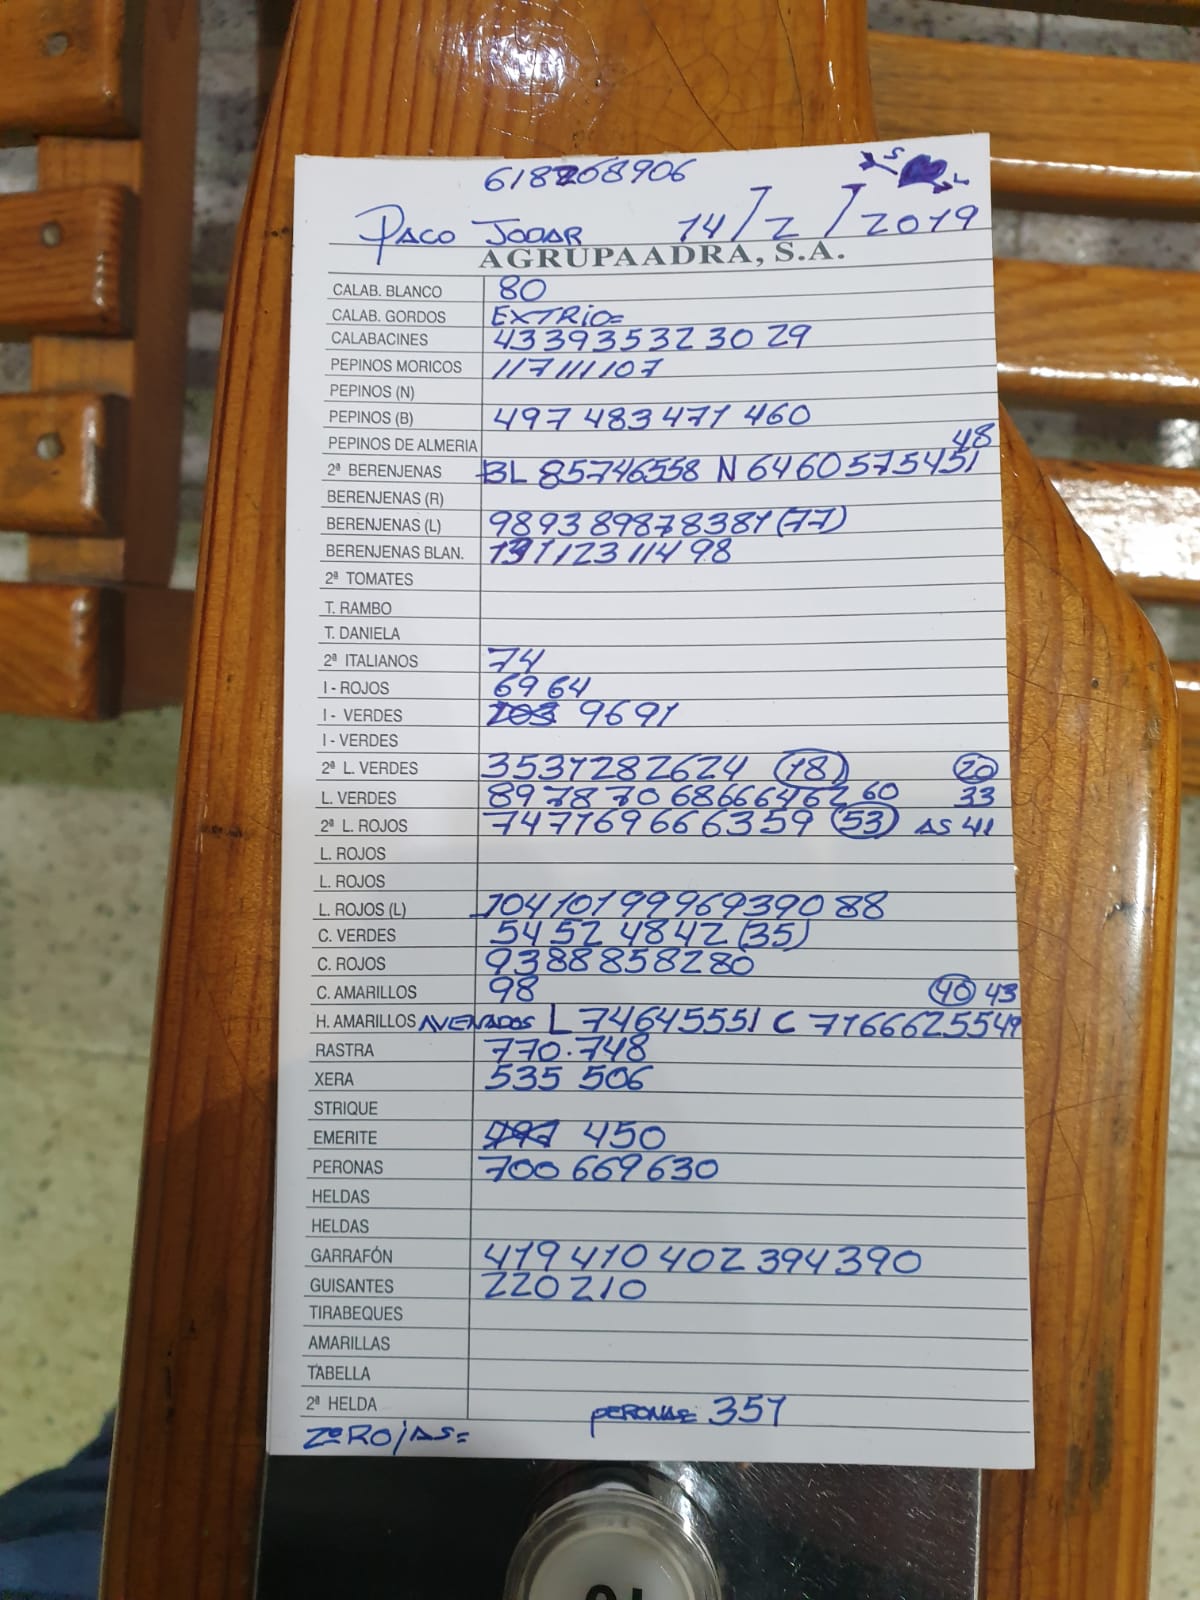 618268906
S L
PACO JODAR 14/2/2019
AGRUPAADRA, S.A.
CALAB. BLANCO 80
CALAB. GORDOS EXTRIO=
CALABACINES 43 39 35 32 30 29
PEPINOS MORICOS 117 111 107
PEPINOS (N)
PEPINOS (B) 497 483 471 460
PEPINOS DE ALMERIA 48
2ª BERENJENAS BL 85 74 65 58 N 64 60 57 54 51
BERENJENAS (R)
BERENJENAS (L) 98 93 89 87 83 81 (77)
BERENJENAS BLAN. 131 123 114 98
2ª TOMATES
T. RAMBO
T. DANIELA
2ª ITALIANOS 74
I - ROJOS 69 64
I - VERDES 103 96 91
I - VERDES
2ª L. VERDES 35 31 28 26 24 (18) 20
L. VERDES 89 78 70 68 66 64 62 60 33
2ª L. ROJOS 74 71 69 66 63 59 (53) AS 41
L. ROJOS
L. ROJOS
L. ROJOS (L) 104 101 99 96 93 90 88
C. VERDES 54 52 48 42 (35)
C. ROJOS 93 88 85 82 80
C. AMARILLOS 98 40 43
H. AMARILLOS AVENADOS L 74 64 55 51 C 71 66 62 55 49
RASTRA 770.748
XERA 535 506
STRIQUE
EMERITE 497 450
PERONAS 700 669 630
HELDAS
HELDAS
GARRAFÓN 419 410 402 394 390
GUISANTES 220 210
TIRABEQUES
AMARILLAS
TABELLA
2ª HELDA PERONAS 351
2ªRO/AS=